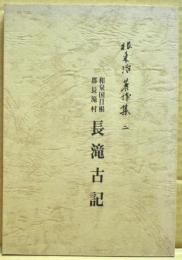 根来治著作集 二
和泉国日根
郡長滝村
長滝古記